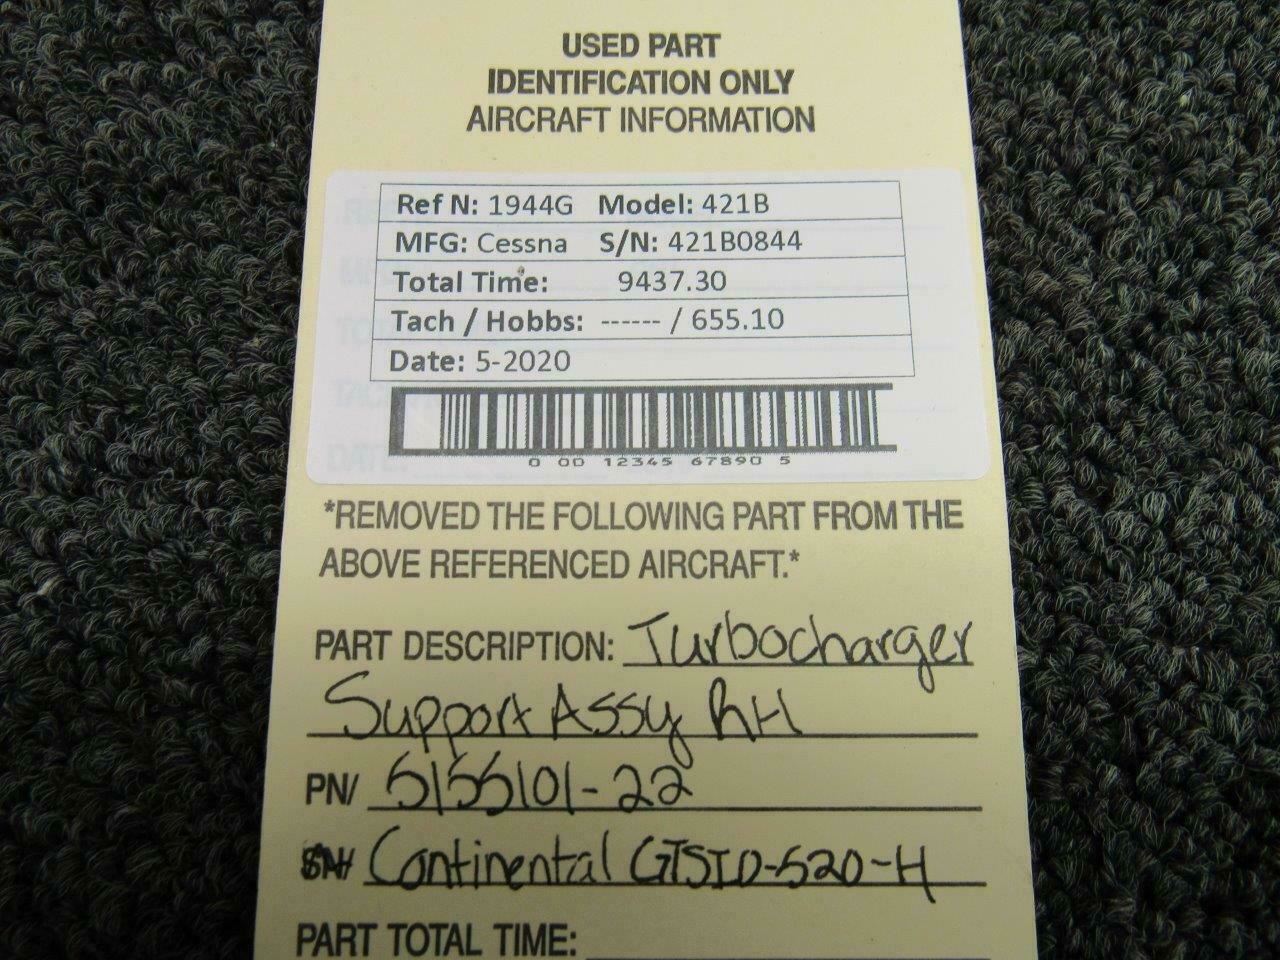 USED PART
IDENTIFICATION ONLY
AIRCRAFT INFORMATION
Ref N: 1944G Model: 421B
MFG: Cessna S/N: 421B0844
Total Time: 9437.30
Tach / Hobbs: ------ / 655.10
Date: 5-2020
0 00 12345 67890 5
*REMOVED THE FOLLOWING PART FROM THE
ABOVE REFERENCED AIRCRAFT.*
PART DESCRIPTION: Turbocharger
Support Assy RH
PN/ 5155101-22
Continental GTSIO-520-H
PART TOTAL TIME: